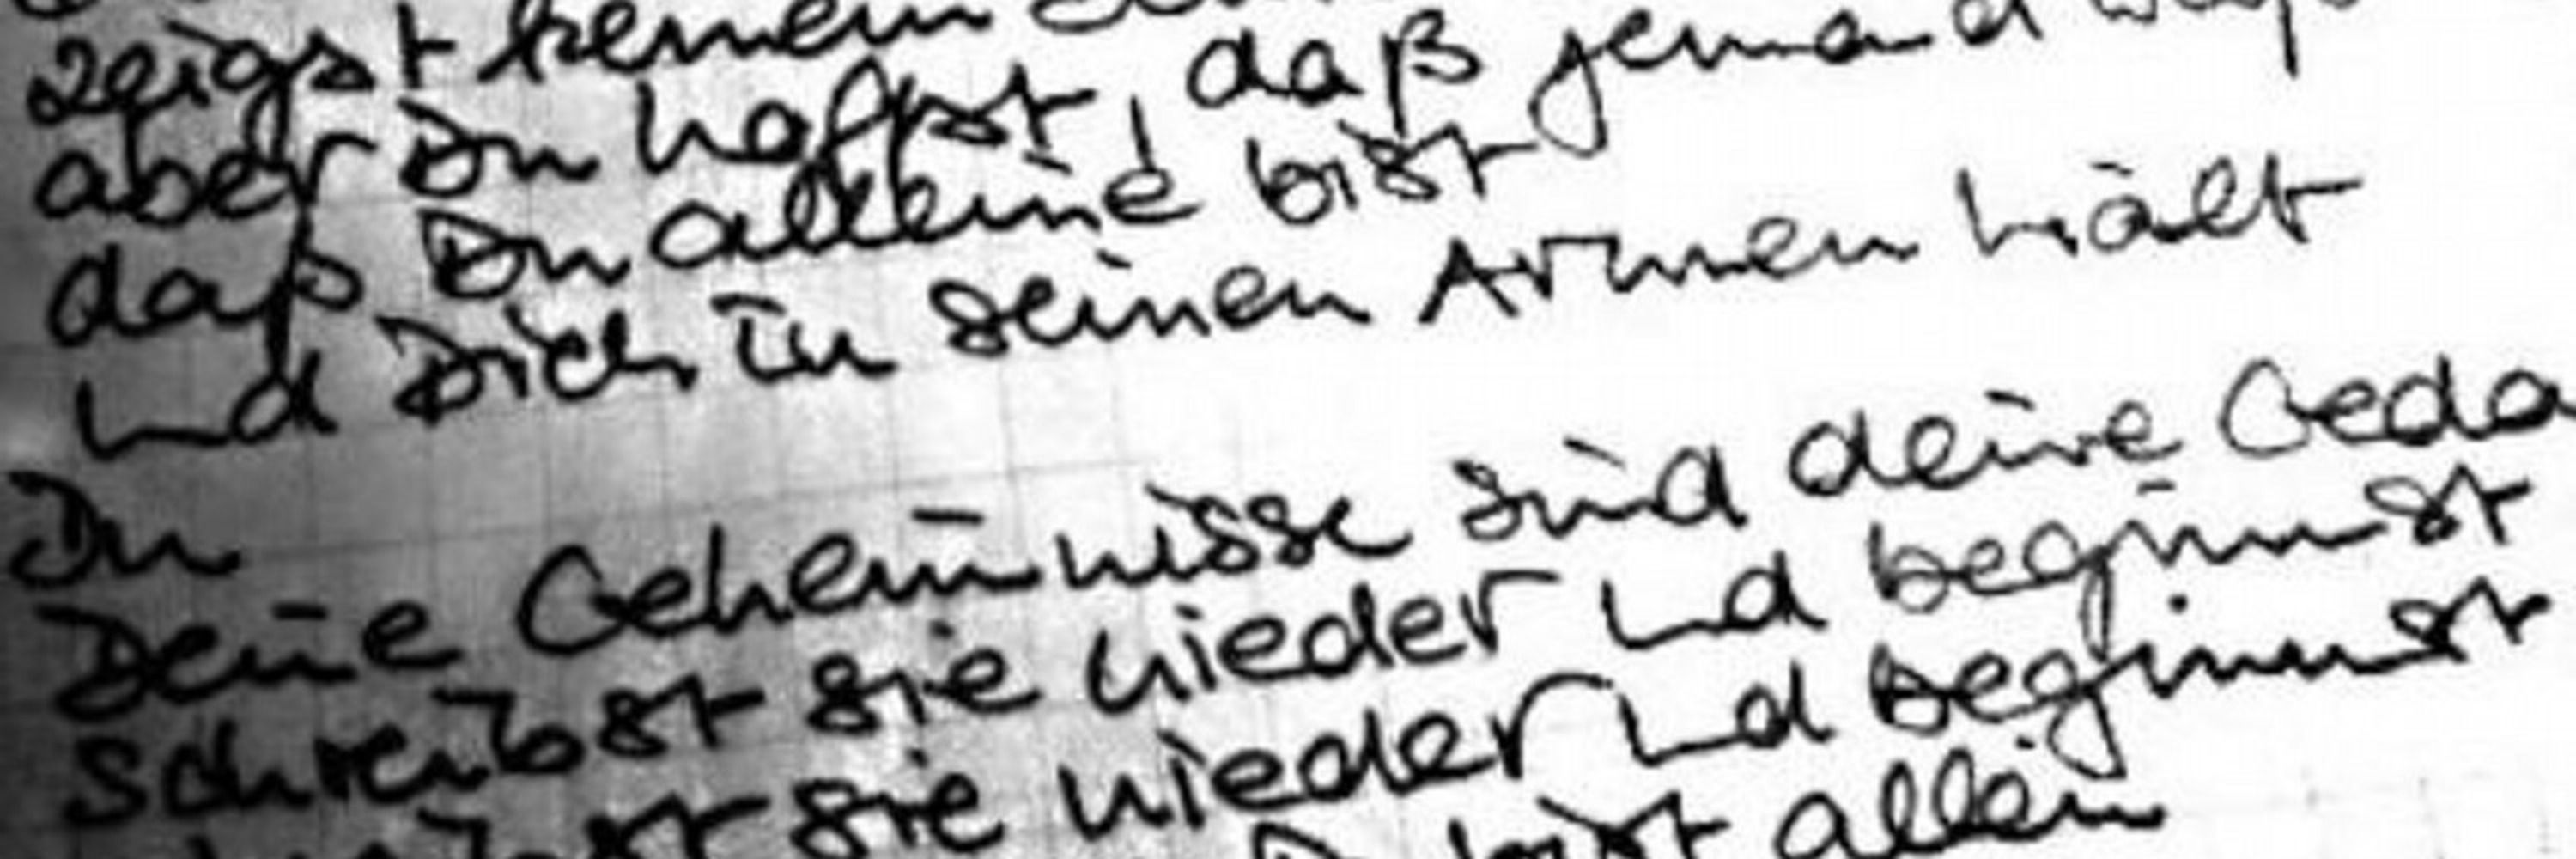 zeigst keinem
aber Du hoffst, daß jemand
daß Du alleine bist
und Dich in seinen Armen hält
Du
Deine Geheimnisse sind deine Geda
schreibst sie nieder und beginnst
sie nieder und beginnst
bist allein